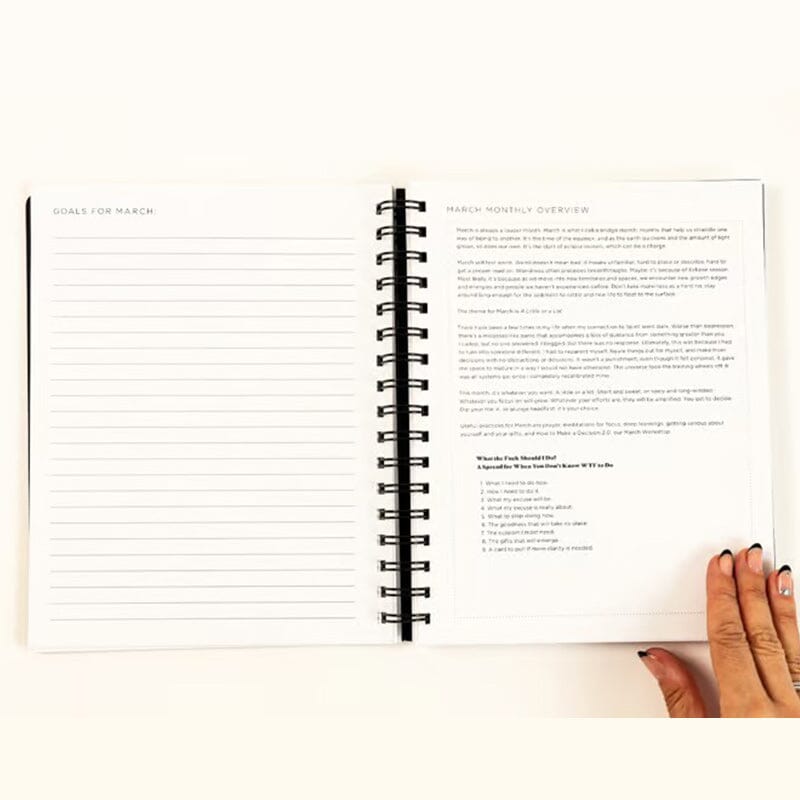 GOALS FOR MARCH:
MARCH MONTHLY OVERVIEW
March is always a teaser month. March is what I call a bridge month: months that help us straddle one
way of being to another. It's the time of the equinox, and as the earth quickens and the amount of light
grows, so does our own. It's the start of eclipse season, which can be a charge.
March will feel weird. Weird doesn't mean bad. It means unfamiliar, hard to place or describe, hard to
get a proper read on. Weirdness often precedes breakthroughs. Maybe it's because of Eclipse season.
Most likely, it's because as we move into new territories and spaces, we encounter new growth edges
and energies and people we haven't experienced before. Don't take weirdness as a hard no, stay
around long enough for the sediment to settle and new life to float to the surface.
The theme for March is A Little or a Lot
There have been a few times in my life when my connection to Spirit went dark. Worse than depression,
there's a hopeless panic that accompanies a loss of guidance from something greater than you.
I called, but no one answered. I begged, but there was no response. Ultimately, this was because I had
to turn into someone different. I had to reparent myself, figure things out for myself, and make
decisions with no distractions or delusions. It wasn't a punishment, even though it felt personal. It gave
me space to mature in a way I would not have otherwise. The universe took the training wheels off. It
was all systems go, once I completely recalibrated mine.
This month, it's whatever you want. A little or a lot. Short and sweet, or lusty and long-winded.
Whatever you focus on will grow. Whatever your efforts are, they will be amplified. You get to decide.
Dip your toe in, or plunge headfirst: it's your choice.
Useful practices for March are prayer, meditations for focus, deep learnings, getting serious about
yourself and your gifts, and How to Make a Decision 2.0, our March Workshop.
What the Fuck Should I Do?
A Spread for When You Don't Know WTF to Do
1. What I need to do now.
2. How I need to do it.
3. What my excuse will be.
4. What my excuse is really about.
5. What to stop doing now.
6. The goodness that will take its place.
7. The support I most need.
8. The gifts that will emerge.
9. A card to pull if more clarity is needed.